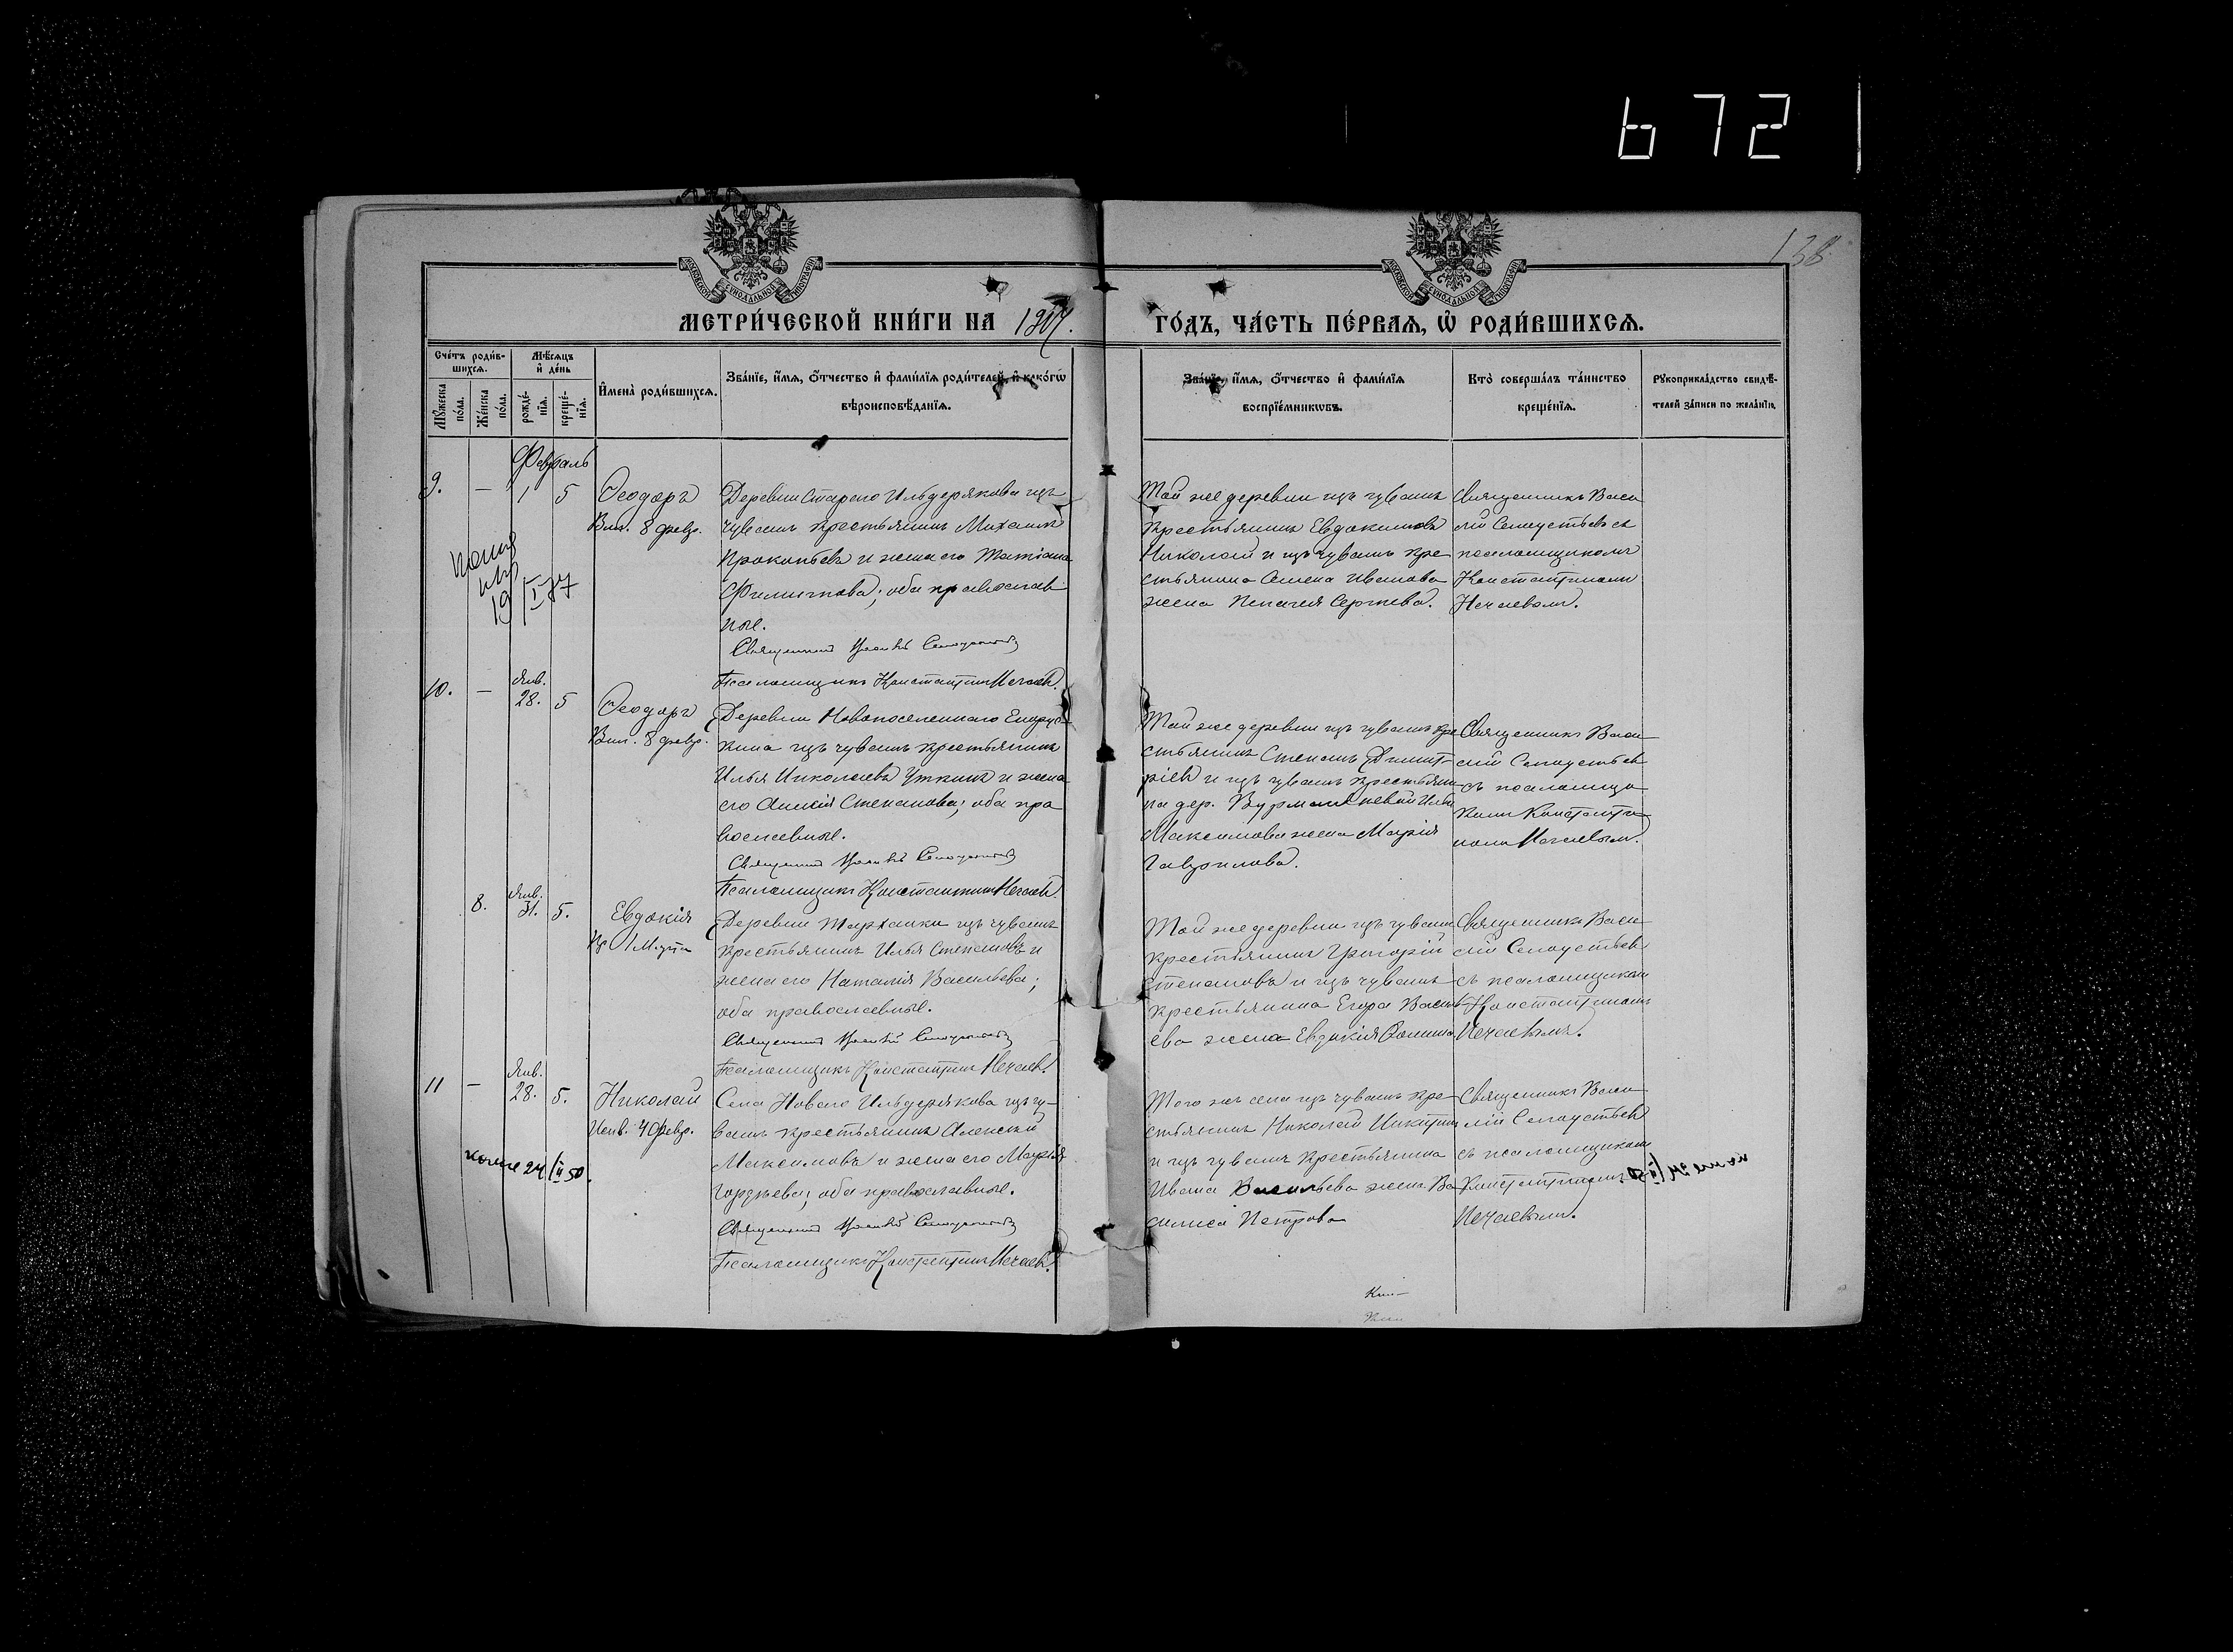 6721
138
МОСКОВСКОЙ СѴНОДАЛЬНОЙ ТИПОГРАФІИ
МОСКОВСКОЙ СѴНОДАЛЬНОЙ ТИПОГРАФІИ
МЕТРИ́ЧЕСКОЙ КНИ́ГИ НА 1907.
ГО́ДЪ, ЧА́СТЬ ПЕ́РВАѦ, Ѡ҆ РОДИ́ВШИХСѦ.
Сче́тъ роди́в-
шихсѧ.
Мꙋ́жеска по́ла.
Же́нска по́ла.
Мѣ́сѧцъ
и҆ де́нь
рожде́-
нїѧ.
креще́-
нїѧ.
И҆мена̀ роди́вшихсѧ.
Зва́нїе, и҆́мѧ, ѻ҆́тчество и҆ фами́лїѧ роди́телей, и҆ како́гѡ
вѣроисповѣ́данїѧ.
Зва́нїе, и҆́мѧ, ѻ҆́тчество и҆ фами́лїѧ
воспрїе́мникѡвъ.
Кто̀ соверша́лъ та́инство
креще́нїѧ.
Рꙋкоприкла́дство свидѣ́-
телей за́писи по жела́нїю.
Февраль
9. — 1 5 Ѳеодоръ
Вип. 8 февр.
19/I 77
Деревни Стараго Ильдерякова изъ
чувашъ крестьянинъ Михаилъ
Прокопьевъ и жена его Татіана
Филиппова; оба православ
ные.
Священникъ Василій Селоустьевъ
Псаломщикъ Константинъ Нечаевъ.
Той же деревни изъ чувашъ
крестьянинъ Евдокимовъ
Николай и изъ чувашъ кре
стьянина Семена Иванова
жена Пелагея Сергеева.
Священникъ Васи
лій Селоустьевъ съ
псаломщикомъ
Константиномъ
Нечаевымъ.
10. — Янв. 28. 5 Ѳеодоръ
Вип. 8 февр.
Деревни Новопоселеннаго Емору-
кина изъ чувашъ крестьянинъ
Илья Николаевъ Уткинъ и жена
его Степанова; оба пра
вославные.
Священникъ Василій Селоустьевъ
Псаломщикъ Константинъ Нечаевъ.
Той же деревни изъ чувашъ кре
стьянинъ Степанъ Димит-
ріевъ и изъ чувашъ крестьяни-
на дер. Ильи
Максимова жена Марія
Гаврилова.
Священникъ Васи
лій Селоустьевъ
съ псаломщи
комъ Константи
номъ Нечаевымъ.
8. Янв. 31. 5. Евдокія
1 Марта
Деревни Тарханки изъ чувашъ
крестьянинъ Илья Степановъ и
жена его Наталія Васильева;
оба православные.
Священникъ Василій Селоустьевъ
Псаломщикъ Константинъ Нечаевъ.
Той же деревни изъ чувашъ
крестьянинъ Григорій
Степановъ и изъ чувашъ
крестьянина Егора Василь-
ева жена Евдокія Ѳомина
Священникъ Васи
лій Селоустьевъ
съ псаломщикомъ
Константиномъ
Нечаевымъ.
11 — Янв. 28. 5. Николай
4 Февр.
24/II 50.
Села Новаго Ильдерякова изъ чу-
вашъ крестьянинъ Алексѣй
Максимовъ и жена его Марѳа
Гордѣева; оба православные.
Священникъ Василій Селоустьевъ
Псаломщикъ Константинъ Нечаевъ.
Того же села изъ чувашъ кре-
стьянинъ Николай Никитин
и изъ чувашъ крестьянина
Ивана Васильева жена Ва
силиса Петрова
Священникъ Васи
лій Селоустьевъ
съ псаломщикомъ
Константиномъ
Нечаевымъ.